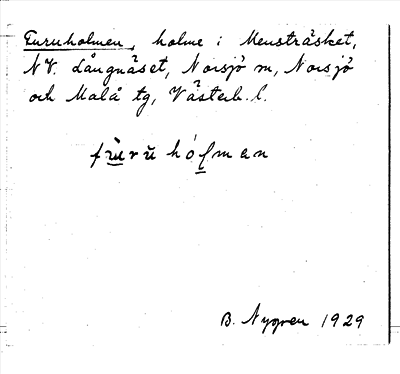 Furuholmen, holme i Mensträsket,
NV. Långnäset, Norsjö sn, Norsjö
och Malå tg, Västerb. l.
fùrŭ hólman
B. Nygren 1929